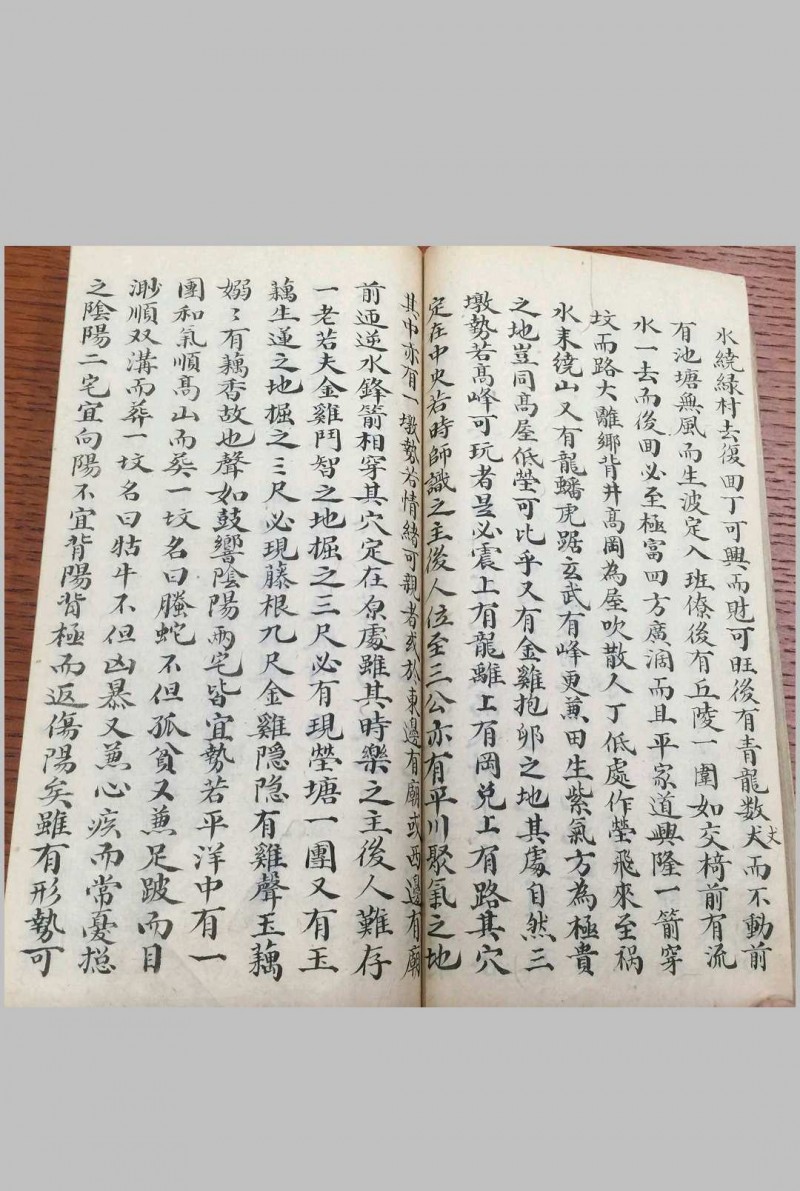 水繞綠村去復田丁可興而財可旺後有青龍数犬而不動前
丈
有池塘無風而生波定入班僚後有丘陵一圍如交椅前有流
水一去而後囬必至極富四方廣濶而且平家道興隆一箭穿
坟而路大離鄉背井高岡為屋吹散人丁低處作塋飛來至禍
水来繞山又有龍蟠虎踞玄武有峰更蒹田生紫氣方為極貴
之地豈同高屋低塋可比乎又有金雞抱卵之地其處自然三
墩勢若高峰可玩者是必震上有龍離上有岡兑上有路其穴
定在中央若時師識之主後人位至三公亦有平川聚氣之地
其中亦有一墩勢若情緒可親者或於東邊有廟或西邊有廟
前迊逆水鋒箭相穿其穴定在原處雖其時樂之主後人難存
一老若夫金雞鬥智之地掘之三尺必有現塋塘一團又有玉
藕生蓮之地掘之三尺必現藤根九尺金雞隱隐有雞聲玉藕
嫋〻有藕香故也聲如鼓響陰陽兩宅皆宜勢若平洋中有一
團和氣順高山而葬一坟名曰螣蛇不但孤貧又蒹足跛而目
渺順双溝而葬一坟名曰牯牛不但凶暴又蒹心疾而常憂摠
之陰陽二宅宜向陽不宜背陽背極而返傷陽矣雖有形勢可